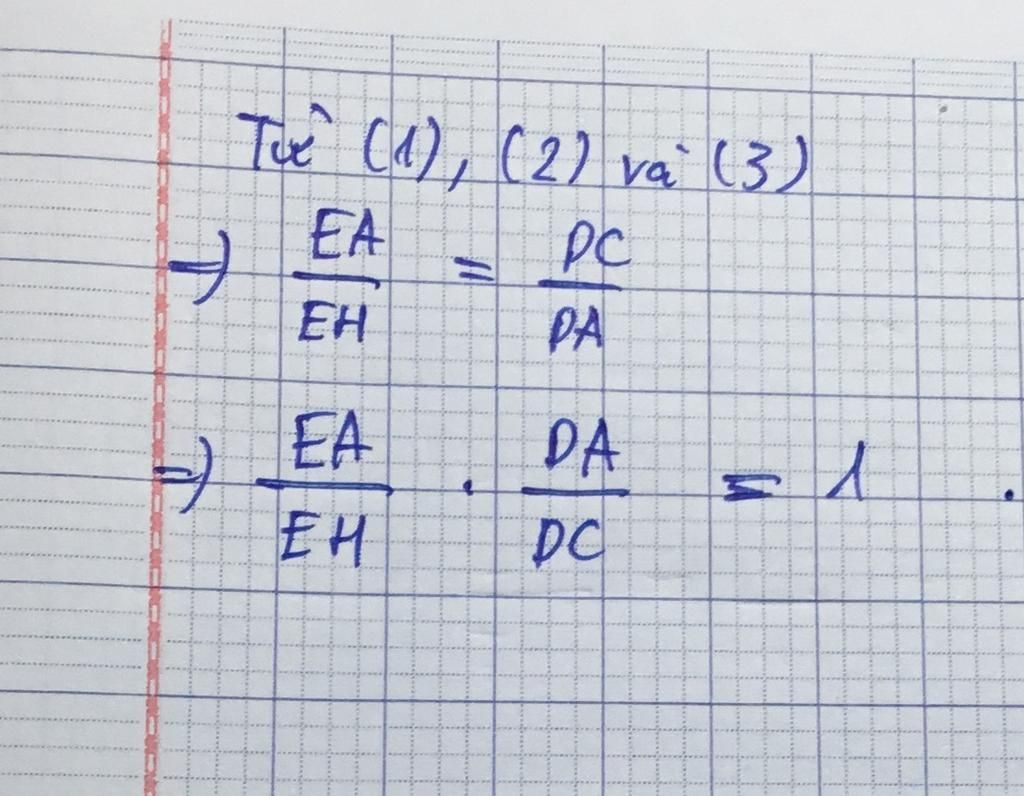 Từ (1), (2) và (3)
=) EA/EH = DC/DA
=) EA/EH . DA/DC = 1 .